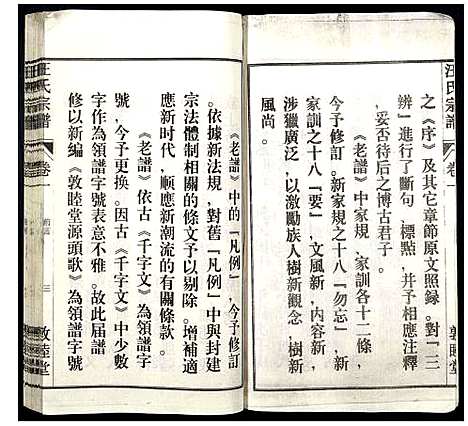 汪氏宗譜
卷一
敦睦堂
之《序》及其它章節原文照録。對「三
辨」進行了斷句，標點，并予相應注釋
，妥否待后之博古君子。
《老譜》中家規、家訓各十二條，
今予修訂。新家規之十八「勿忘」，新
家訓之十八「要」，文風新，内容新，
涉獵廣泛，以激勵族人樹新觀念，樹新
風尚。
《老譜》中的「凡例」，今予修訂
。依據新法規，對舊「凡例」中與封建
宗法體制相關的條文予以剔除。增補適
應新時代，順應新潮流的有關條款。
《老譜》依古《千字文》為領譜字
號，今予更换。因古《千字文》中少數
字作為領譜字號表意不雅。故此届譜
修以新編《敦睦堂源頭歌》為領譜字號
汪氏宗譜
卷一
三
敦睦堂